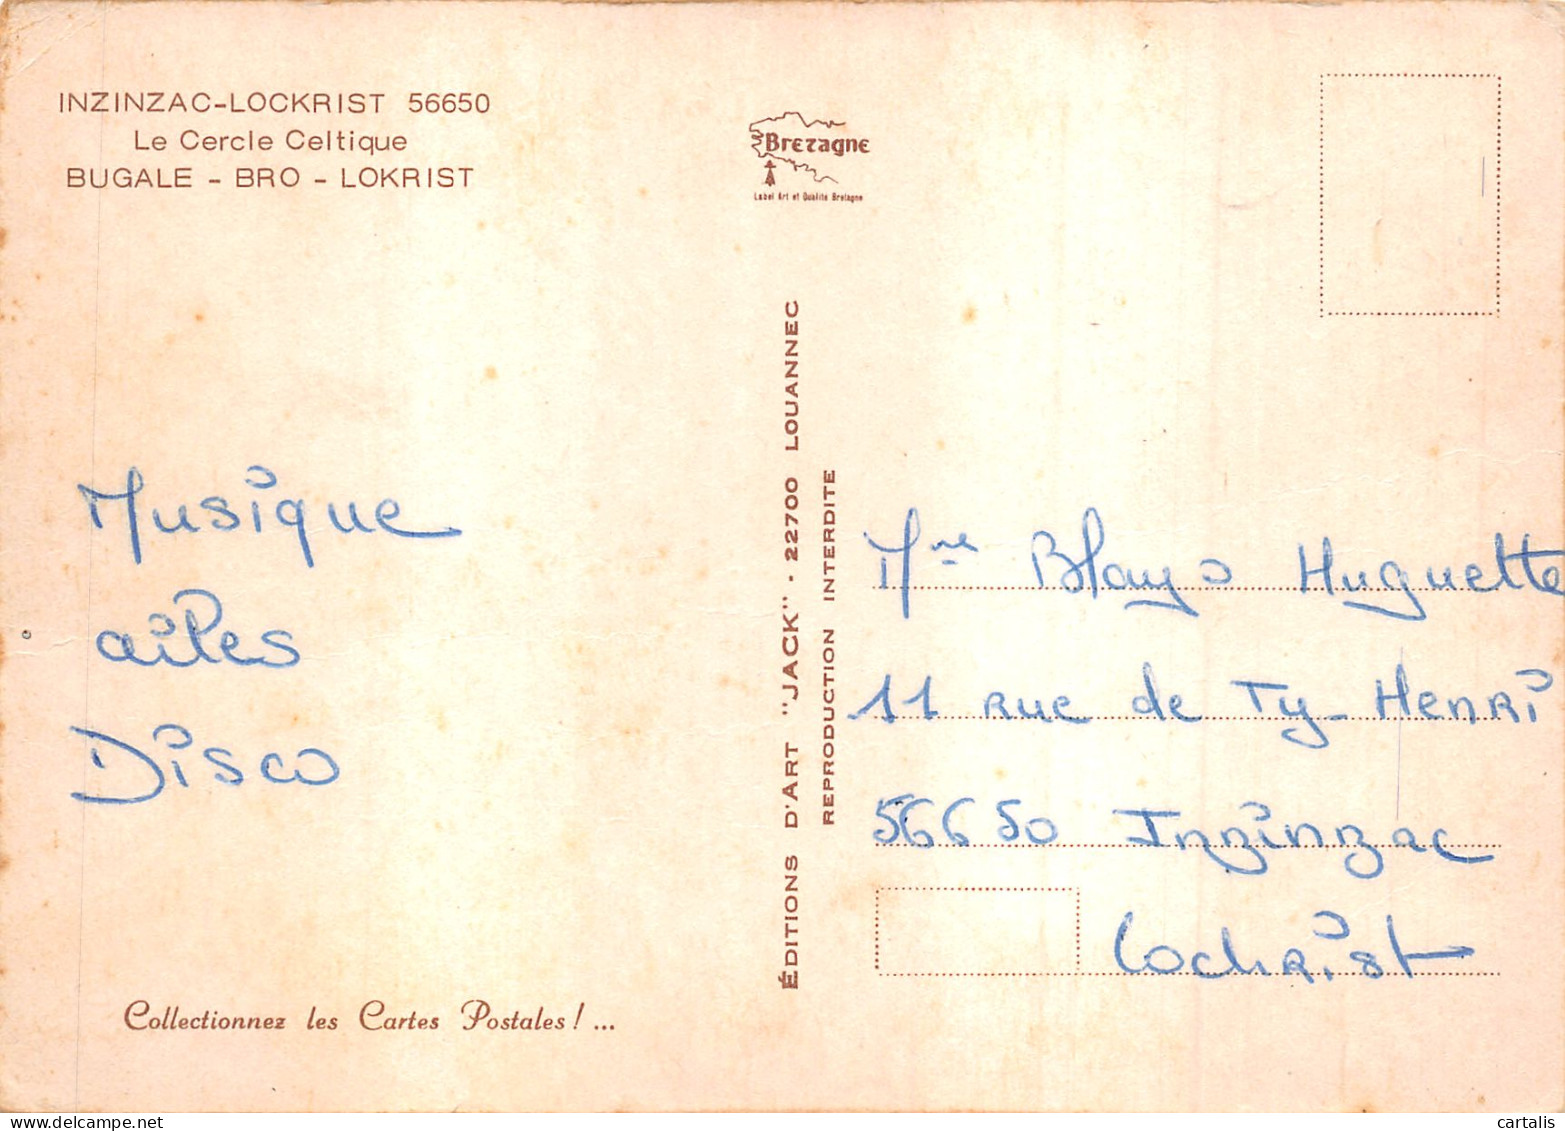 INZINZAC-LOCKRIST 56650
Le Cercle Celtique
BUGALE - BRO - LOKRIST
Bretagne
Label Art et Qualité Bretagne
Musique
ailes
Disco
Collectionnez les Cartes Postales ! ...
ÉDITIONS D'ART "JACK" - 22700 LOUANNEC
REPRODUCTION INTERDITE
Mme Blayo Huguette
11 rue de Ty-Henri
56650 Inzinzac
Lochrist
cartalis